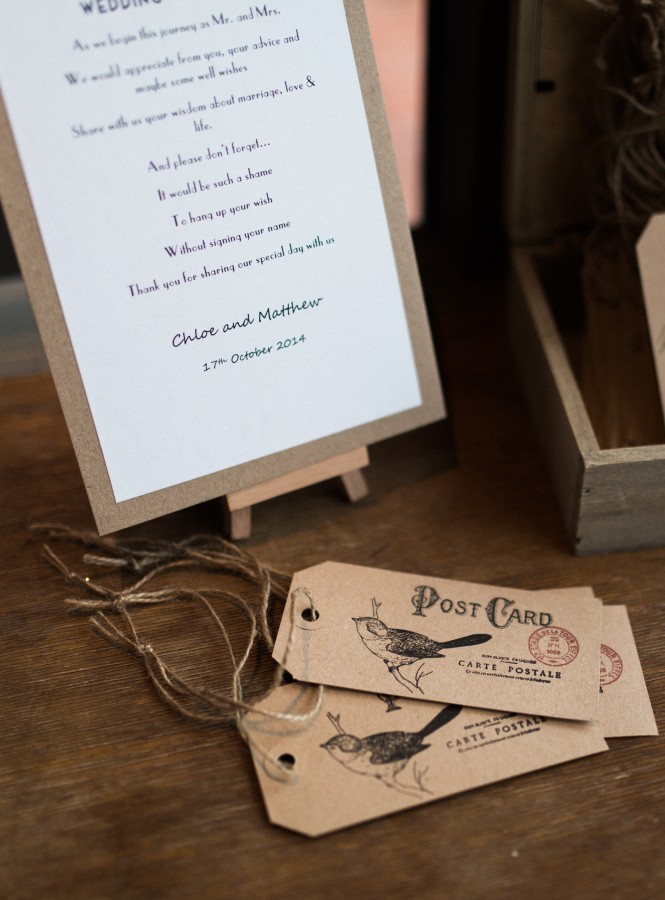 WEDDING
As we begin this journey as Mr. and Mrs.
We would appreciate from you, your advice and
maybe some well wishes
Share with us your wisdom about marriage, love &
life.
And please don't forget...
It would be such a shame
To hang up your wish
Without signing your name
Thank you for sharing our special day with us
Chloe and Matthew
17th October 2014
POST CARD
CARTE POSTALE
CARTE POSTALE